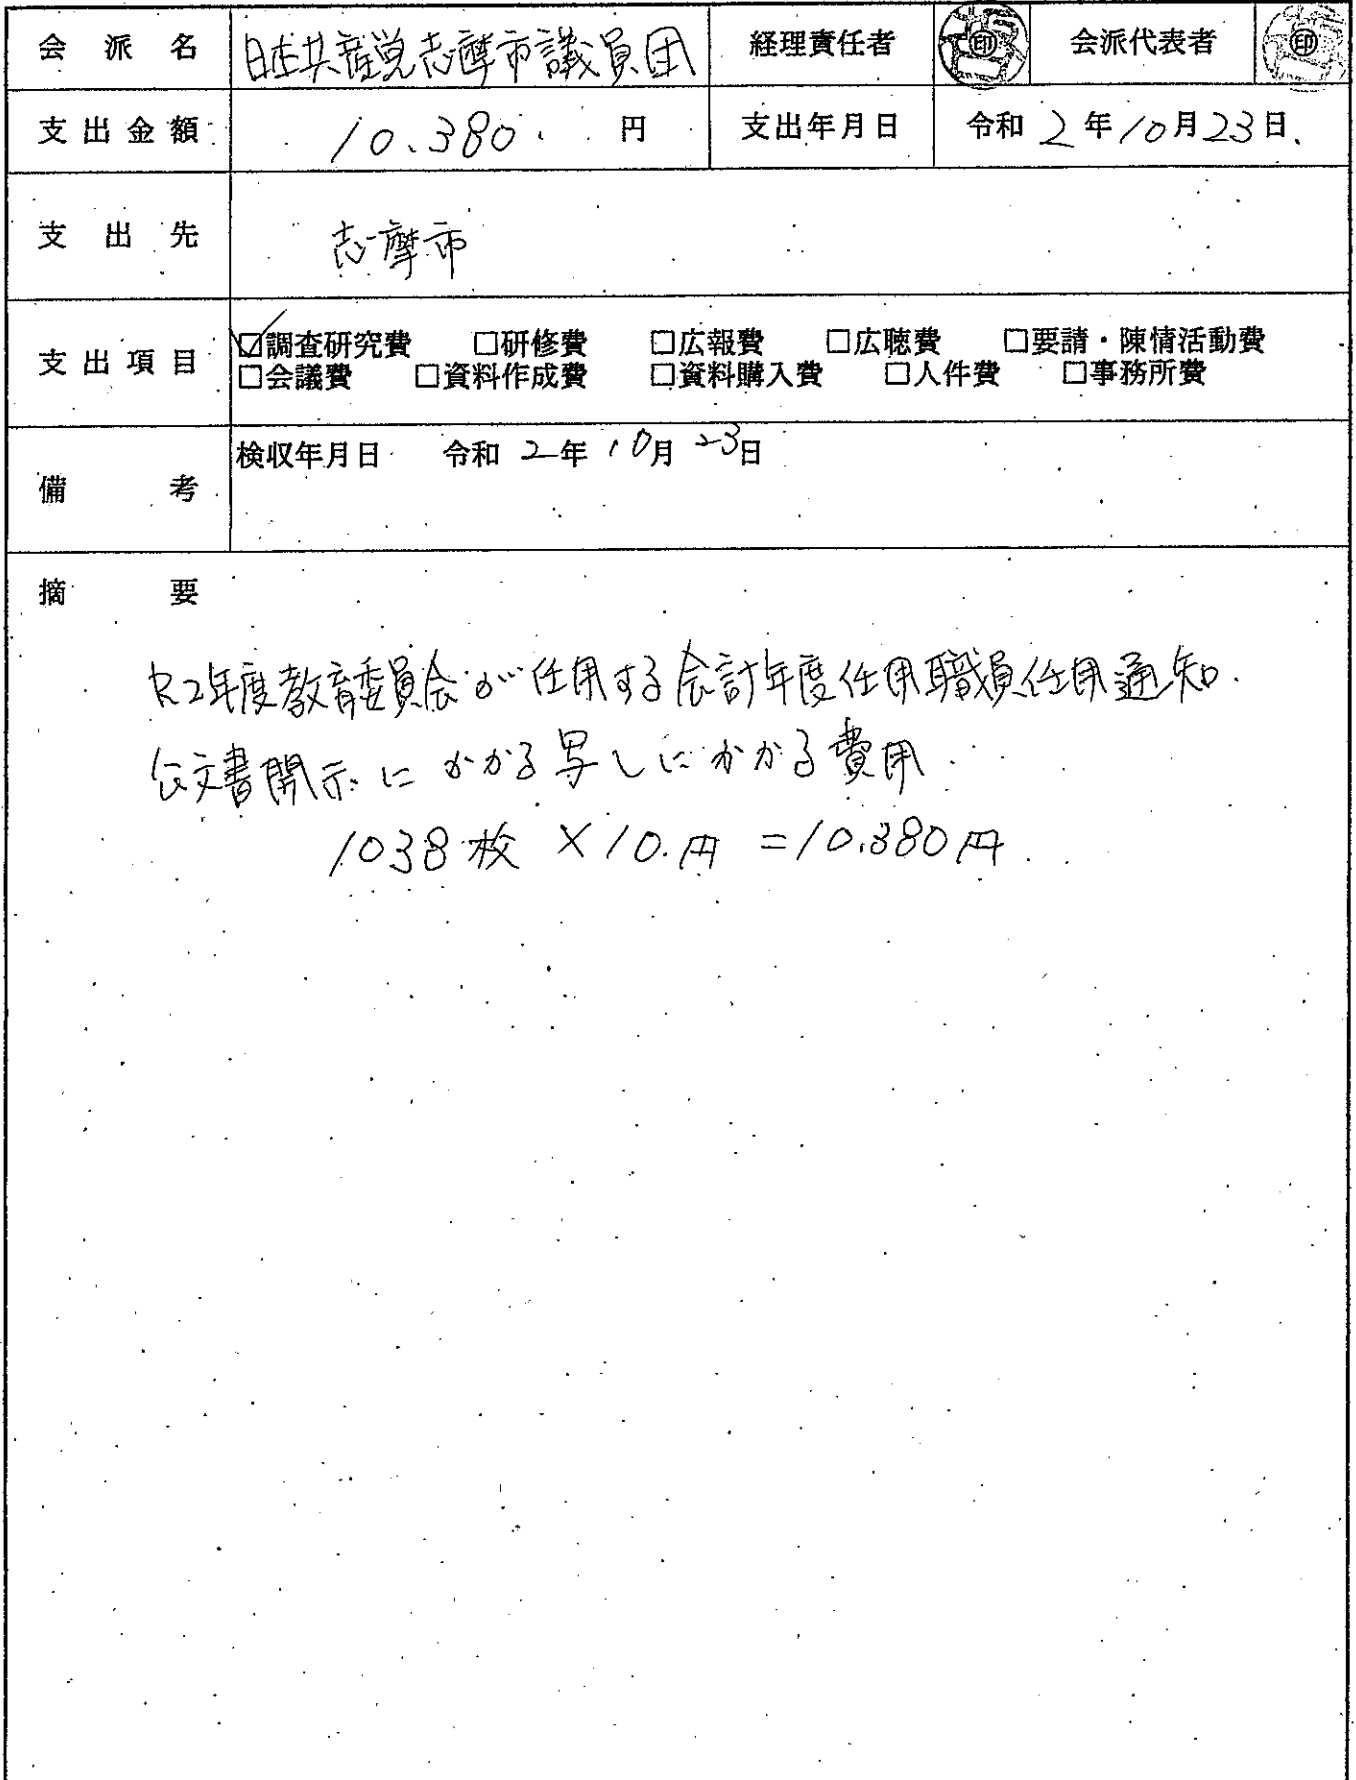 会派名 日本共産党志摩市議員団 経理責任者 印 会派代表者 印
支出金額 10,380. 円 支出年月日 令和 2 年 10 月 23 日
支出先 志摩市
支出項目 ☑調査研究費 □研修費 □広報費 □広聴費 □要請・陳情活動費
□会議費 □資料作成費 □資料購入費 □人件費 □事務所費
備考 検収年月日 令和 2 年 10 月 23 日
摘要
R2年度教育委員会が任用する会計年度任用職員任用通知
公文書開示にかかる写しにかかる費用
1038枚 × 10.円 = 10,380円